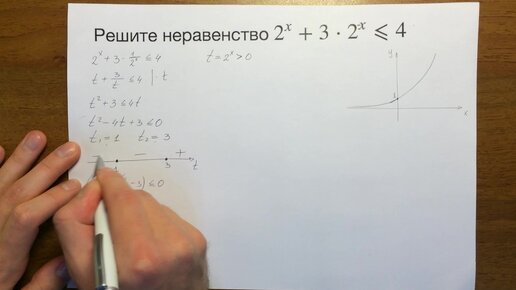 Решите неравенство 2^x + 3 · 2^x ⩽ 4
2^x + 3 · 1/2^x ≤ 4
t = 2^x > 0
t + 3/t ≤ 4 | · t
t² + 3 ≤ 4t
t² - 4t + 3 ≤ 0
t₁ = 1 t₂ = 3
- +
3 t
-3) ≤ 0
y
1
x